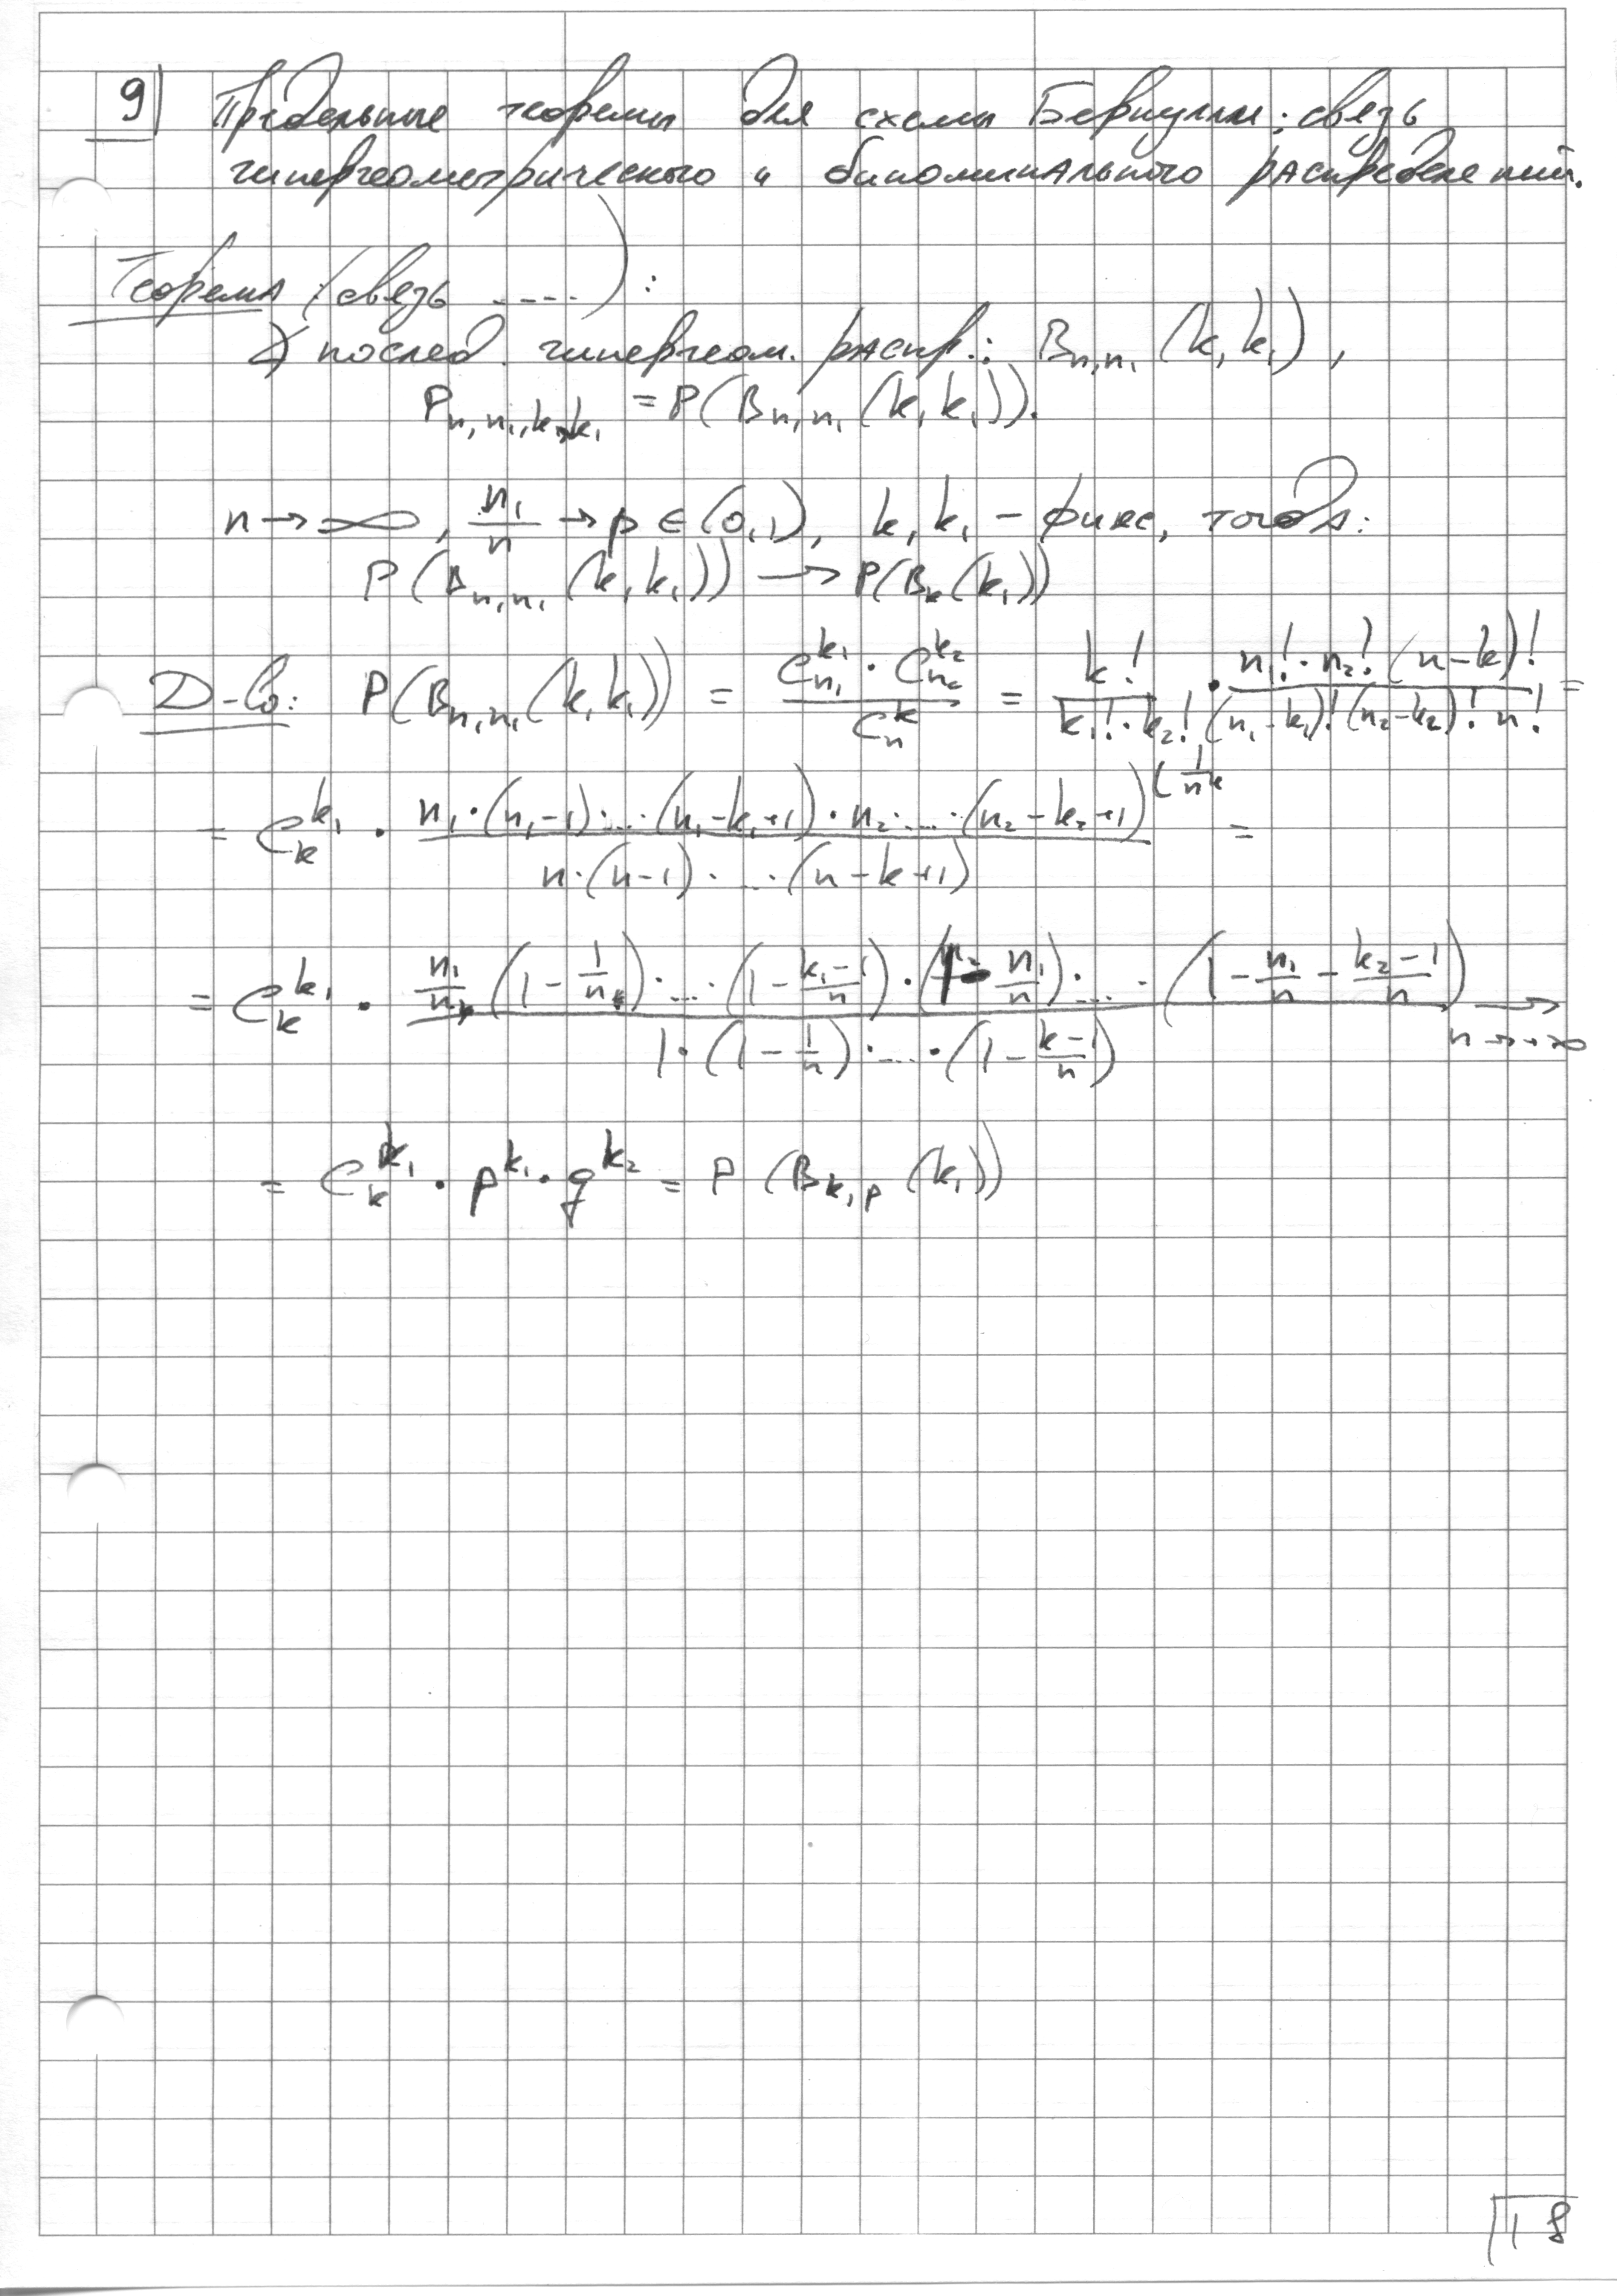 9) Предельные теоремы для схемы Бернулли: связь
гипергеометрического и биномиального распределений.
Теорема (связь ----):
∠) послед. гипергеом. распр.: B_{n,n₁}(k,k₁),
P_{n,n₁,k,k₁} = P(B_{n,n₁}(k,k₁)).
n → ∞, n₁/n → p ∈ (0,1), k, k₁ – фикс, тогда:
P(B_{n,n₁}(k,k₁)) → P(B_k(k₁))
Д-во: P(B_{n,n₁}(k,k₁)) = (C_{n₁}^{k₁} · C_{n₂}^{k₂}) / C_n^k = k! / (k₁!·k₂!) · (n₁!·n₂!(n-k)!) / ((n₁-k₁)!(n₂-k₂)!n!) =
= C_k^{k₁} · (n₁·(n₁-1)·...·(n₁-k₁+1)·n₂·...·(n₂-k₂+1)) / (n·(n-1)·...·(n-k+1)) (1/n^k =
= C_k^{k₁} · (n₁/n (1 - 1/n)·...·(1 - (k₁-1)/n)·(1 - n₁/n)·...·(1 - n₁/n - (k₂-1)/n)) / (1·(1 - 1/n)·...·(1 - (k-1)/n)) → n→+∞
= C_k^{k₁} · p^{k₁} · q^{k₂} = P(B_{k,p}(k₁))
18